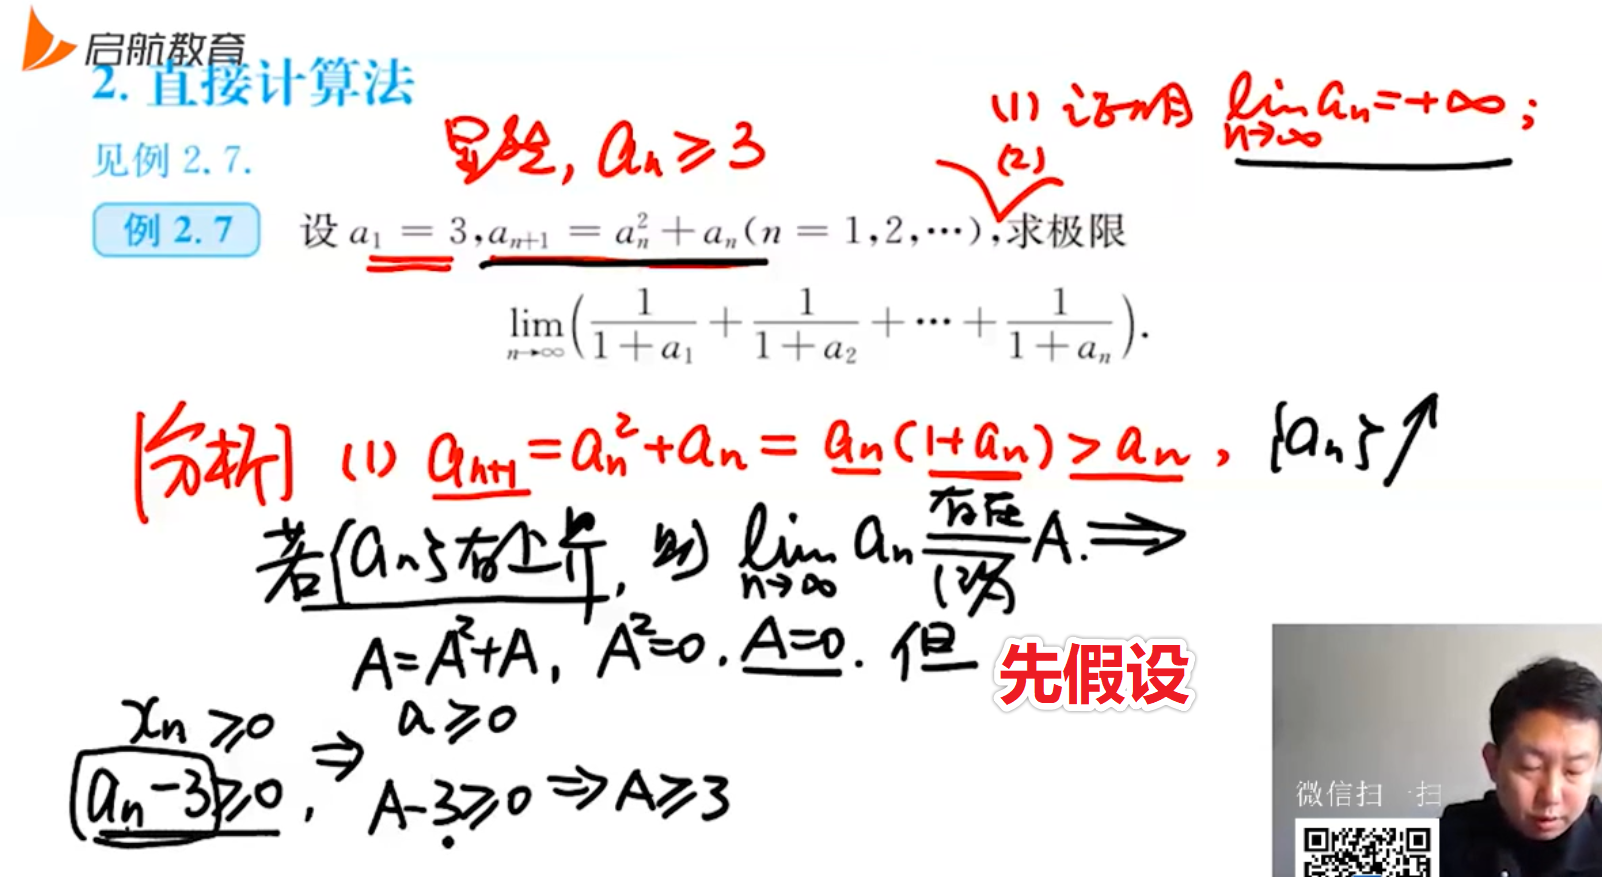 启航教育
2. 直接计算法
(1) 证明 lim aₙ=+∞;
n→∞
见例 2.7.
显然, aₙ≥3
(2)
例 2.7 设 a₁ = 3,aₙ₊₁ = aₙ² + aₙ(n = 1,2,⋯),求极限
lim(1/(1+a₁) + 1/(1+a₂) + ⋯ + 1/(1+aₙ)).
n→∞
[分析] (1) aₙ₊₁=aₙ²+aₙ= aₙ(1+aₙ)>aₙ, {aₙ}↗
若{aₙ}有上界, 则 lim aₙ 存在 A. ⇒
n→∞ 记为
A=A²+A, A²=0. A=0. 但
先假设
xₙ≥0 ⇒ a≥0
aₙ-3≥0, A-3≥0 ⇒ A≥3
微信扫一扫